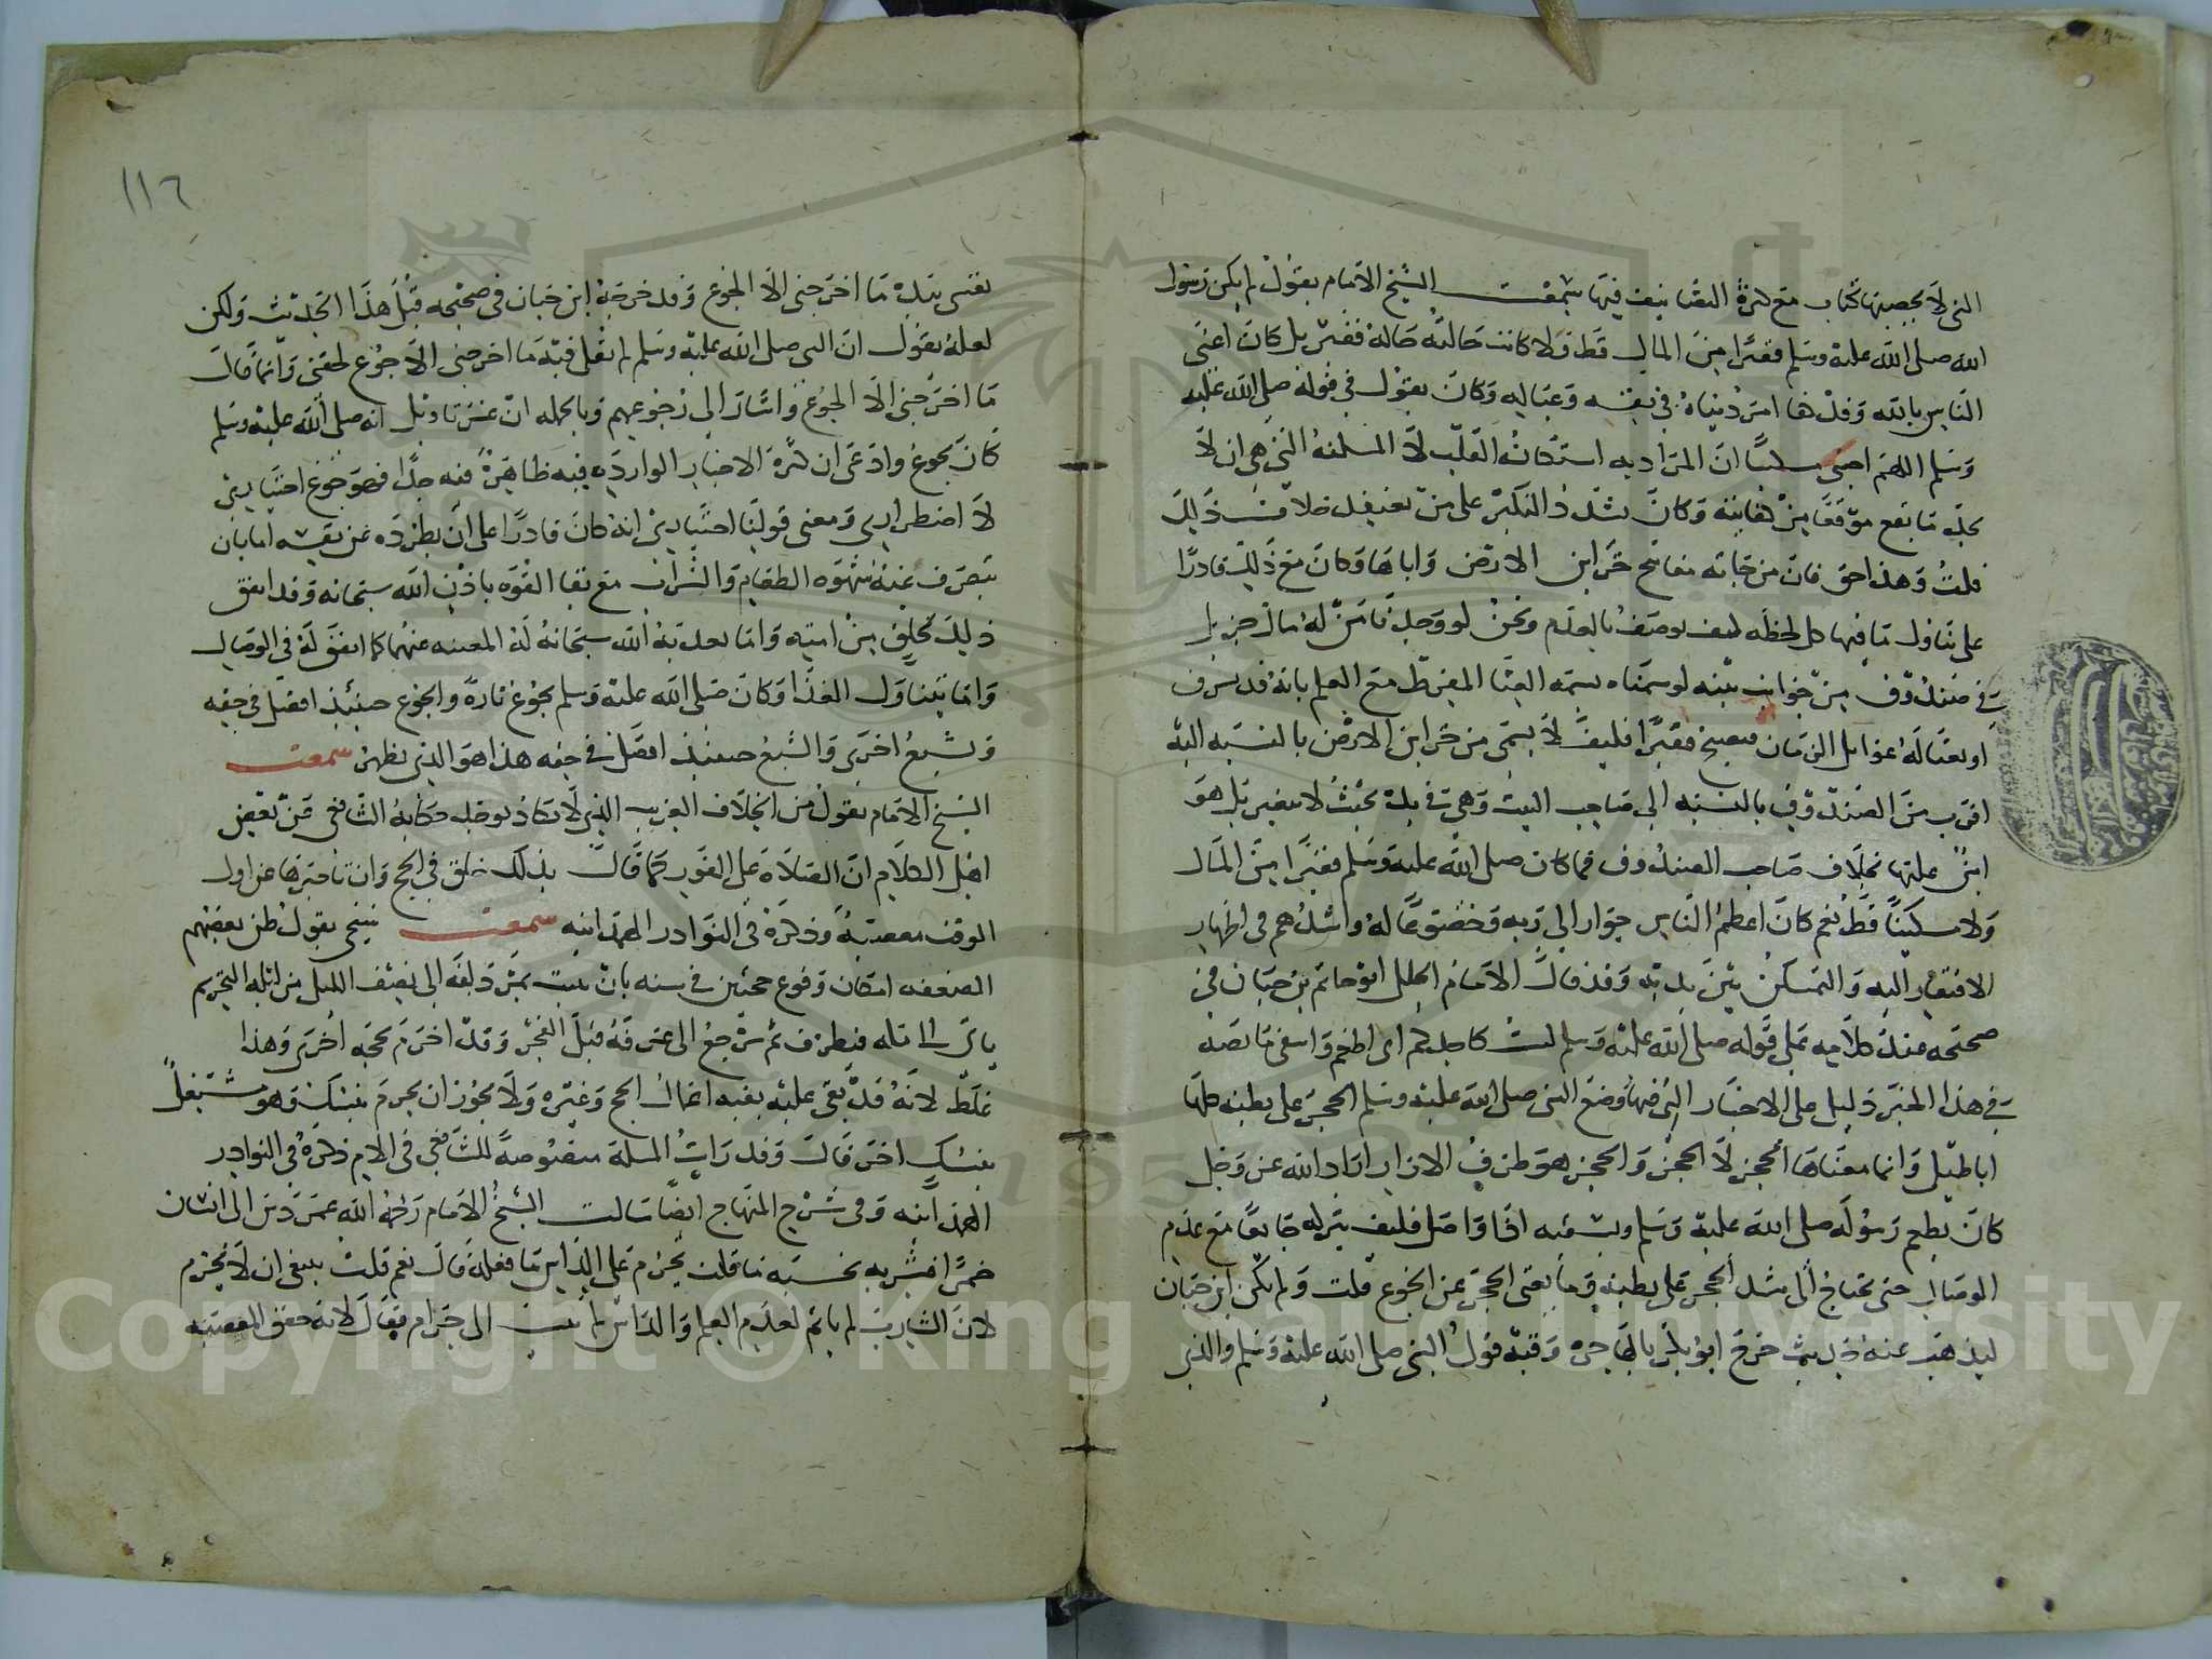 التى لا يحصيها كتاب مع كثرة التصانيف فيها سمعت الشيخ الامام يقول لم يكن رسول
الله صلى الله عليه وسلم فقيرا من المال قط ولا كانت حالته حالة فقير بل كان اغنى
الناس بالله وقد كفاه امر دنياه فى نفسه وعياله وكان يقول فى قوله صلى الله عليه
وسلم اللهم احينى مسكينا ان المراد به استكانة القلب لا المسكنة التى هى ان لا
يجد ما يقع موقعا من كفايته وكان يشدد النكير على من يعتقد خلاف ذلك
قلت وهذا حق فان من جاءته مفاتيح خزاين الارض واباها وكان مع ذلك قادرا
على تناول ما فيها كل لحظه كيف يوصف بالعدم ونحن لو وجدنا من له مال جزيل
فى صندوق من جوانب بيته لوسمناه بسمة الغنا المفرط مع العلم بانه قد يسرق
او تغتاله غوايل الزمان فيصبح فقيرا فكيف لا يسمى من خزاين الارض بالنسبه اليه
اقرب من الصندوق بالنسبه الى صاحب البيت وهى فى يده بحيث لا تتغير بل هو
امن عليها بخلاف صاحب الصندوق فما كان صلى الله عليه وسلم فقيرا من المال
ولا مسكينا قط نعم كان اعظم الناس جؤارا الى ربه وخضوعا له واشدهم فى اظهار
الافتقار اليه والتمسكن بين يديه وقد قال الامام الجليل ابو حاتم بن حبان فى
صحيحه عند كلامه على قوله صلى الله عليه وسلم لست كاحدكم انى اطعم واسقى ما نصه
فى هذا الخبر دليل على الاخبار التى فيها وضع النبى صلى الله عليه وسلم الحجر على بطنه كلها
اباطيل وانما معناها الحجز لا الحجر والحجز هو طرف الازار اذ الله عز وجل
كان يطعم رسوله صلى الله عليه وسلم ويسقيه اذا واصل فكيف يتركه جايعا مع عدم
الوصال حتى يحتاج الى شد الحجر على بطنه وما يغنى الحجر عن الجوع قلت ولم يكن ابن حبان
ليذهب عنه حديث خرج ابو بكر بالهاجرة وفيه قول النبى صلى الله عليه وسلم والذى
١١٦
نفسى بيده ما اخرجنى الا الجوع وقد خرجه ابن حبان فى صحيحه قبل هذا الحديث ولكن
لعله يقول ان النبى صلى الله عليه وسلم لم يقل فيه ما اخرجنى الا جوع لحقنى وانما قال
ما اخرجنى الا الجوع واشار الى جوعهم وبالجمله ان عسر تاويل انه صلى الله عليه وسلم
كان يجوع وادعى ان كثرة الاخبار الوارده فيه ظاهرة فيه جدا فهو جوع اختيارى
لا اضطرارى ومعنى قولنا اختيارى انه كان قادرا على ان يطرده عن نفسه اما بان
يتصرف عنه شهوه الطعام والشراب مع بقا القوه باذن الله سبحانه وقد اتفق
ذلك لخلق من امته واما بعد به الله سبحانه له المغنيه عنهما كما اتفق له فى الوصال
واما يتناول الغذا وكان صلى الله عليه وسلم يجوع تارة والجوع حينئذ افضل فى حقه
ويشبع اخرى والشبع حينئذ افضل فى حقه هذا هو الذى يظهر سمعت
الشيخ الامام يقول من الخلاف الغريب الذى لا يكاد يوجد حكاية الشافعى عن بعض
اهل الكلام ان الصلاة على الفور كما قال بذلك خلق فى الحج وان تاخيرها عن اول
الوقت معصية وذكره فى النوادر الهمدانيه سمعت شيخى يقول ظن بعضهم
الضعف امكان وقوع حجتين فى سنه بان يبيت بمزدلفه الى نصف الليل من ليله النحر ثم
ياتى الى مكه فيطوف ثم يرجع الى عرفه قبل الفجر وقد احرم بحجه اخرى وهذا
غلط لانه قد بقى عليه بقيه اعمال الحج وغيره ولا يجوز ان يحرم بنسك وهو مشتغل
بنسك اخر قال وقد رايت المسله منصوصة للشافعى فى الام ذكره فى النوادر
الهمدانيه وفى شرح المنهاج ايضا سالت الشيخ الامام رحمه الله عمن دس الى انسان
خمرا فشربه بحسبه ما قلت يحرم على الداس ما فعله قال نعم قلت ينبغى ان لا يحرم
لان الشارب لم ياثم لعدم العلم والداس لم يتسبب الى حرام فقال لانه حقق المعصيه